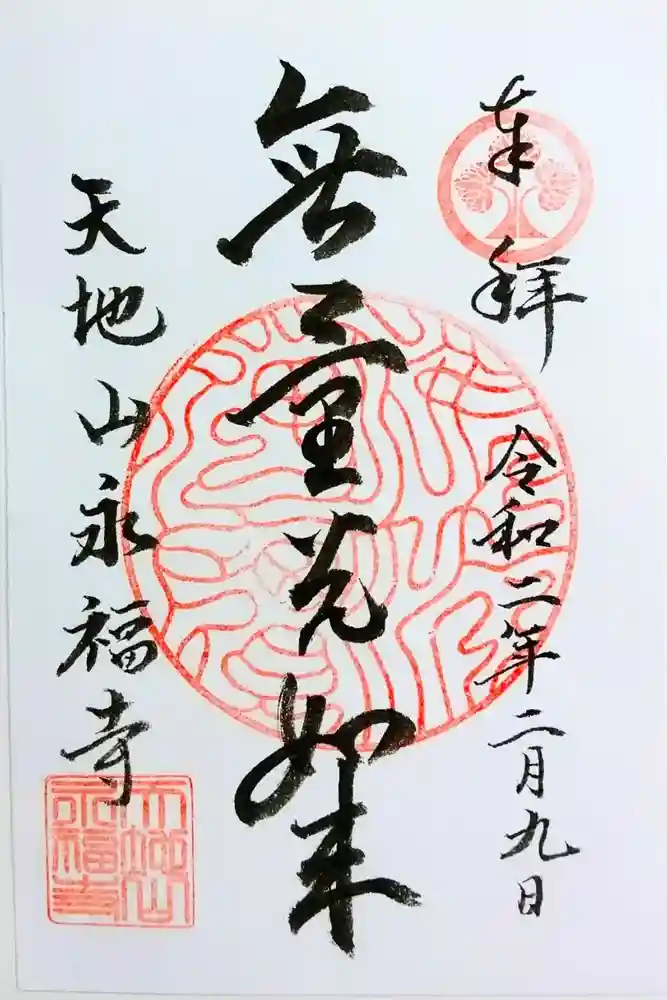 奉拝
令和二年二月九日
無量光如来
天地山永福寺
天地山
永福寺